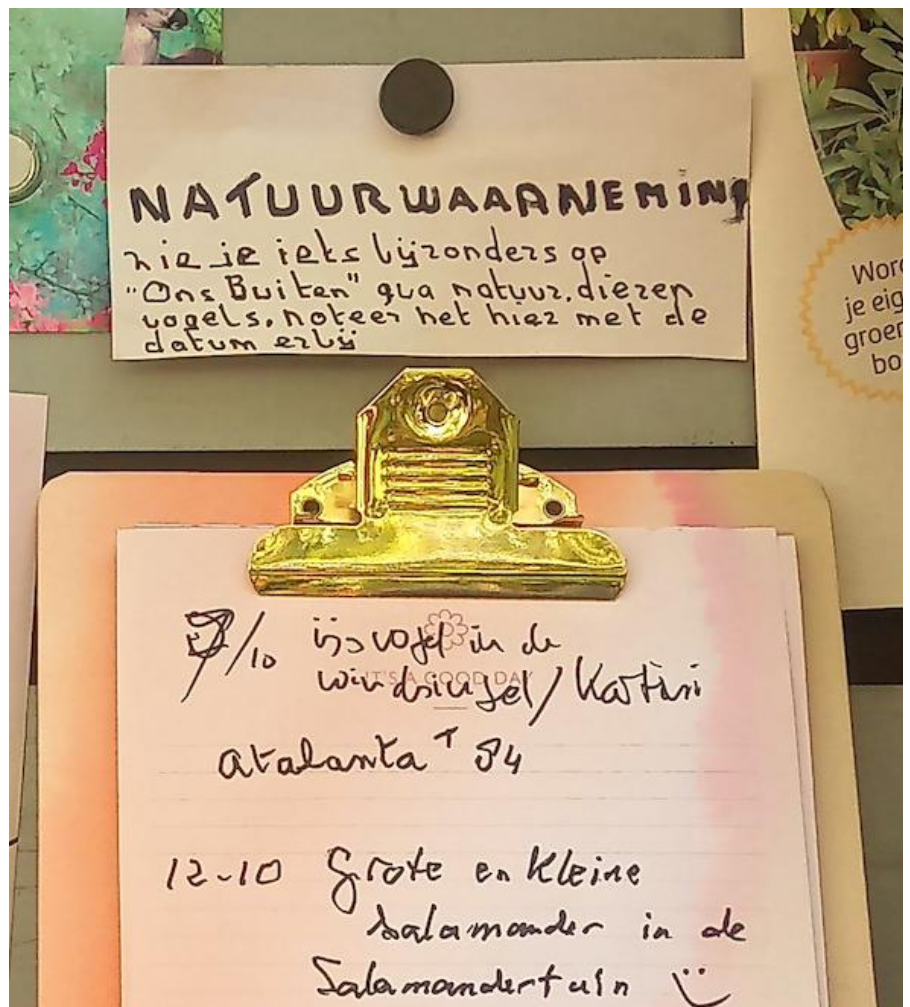 NATUURWAARNEMING
zie je iets bijzonders op
"Ons Buiten" qua natuur, dieren
vogels, noteer het hier met de
datum erbij
Word
je eig
groen
bo
7/10 ijsvogel in de
IT'S A GOOD DAY
windsingel/Katini
atalanta T 84
12-10 Grote en Kleine
salamander in de
Salamandertuin